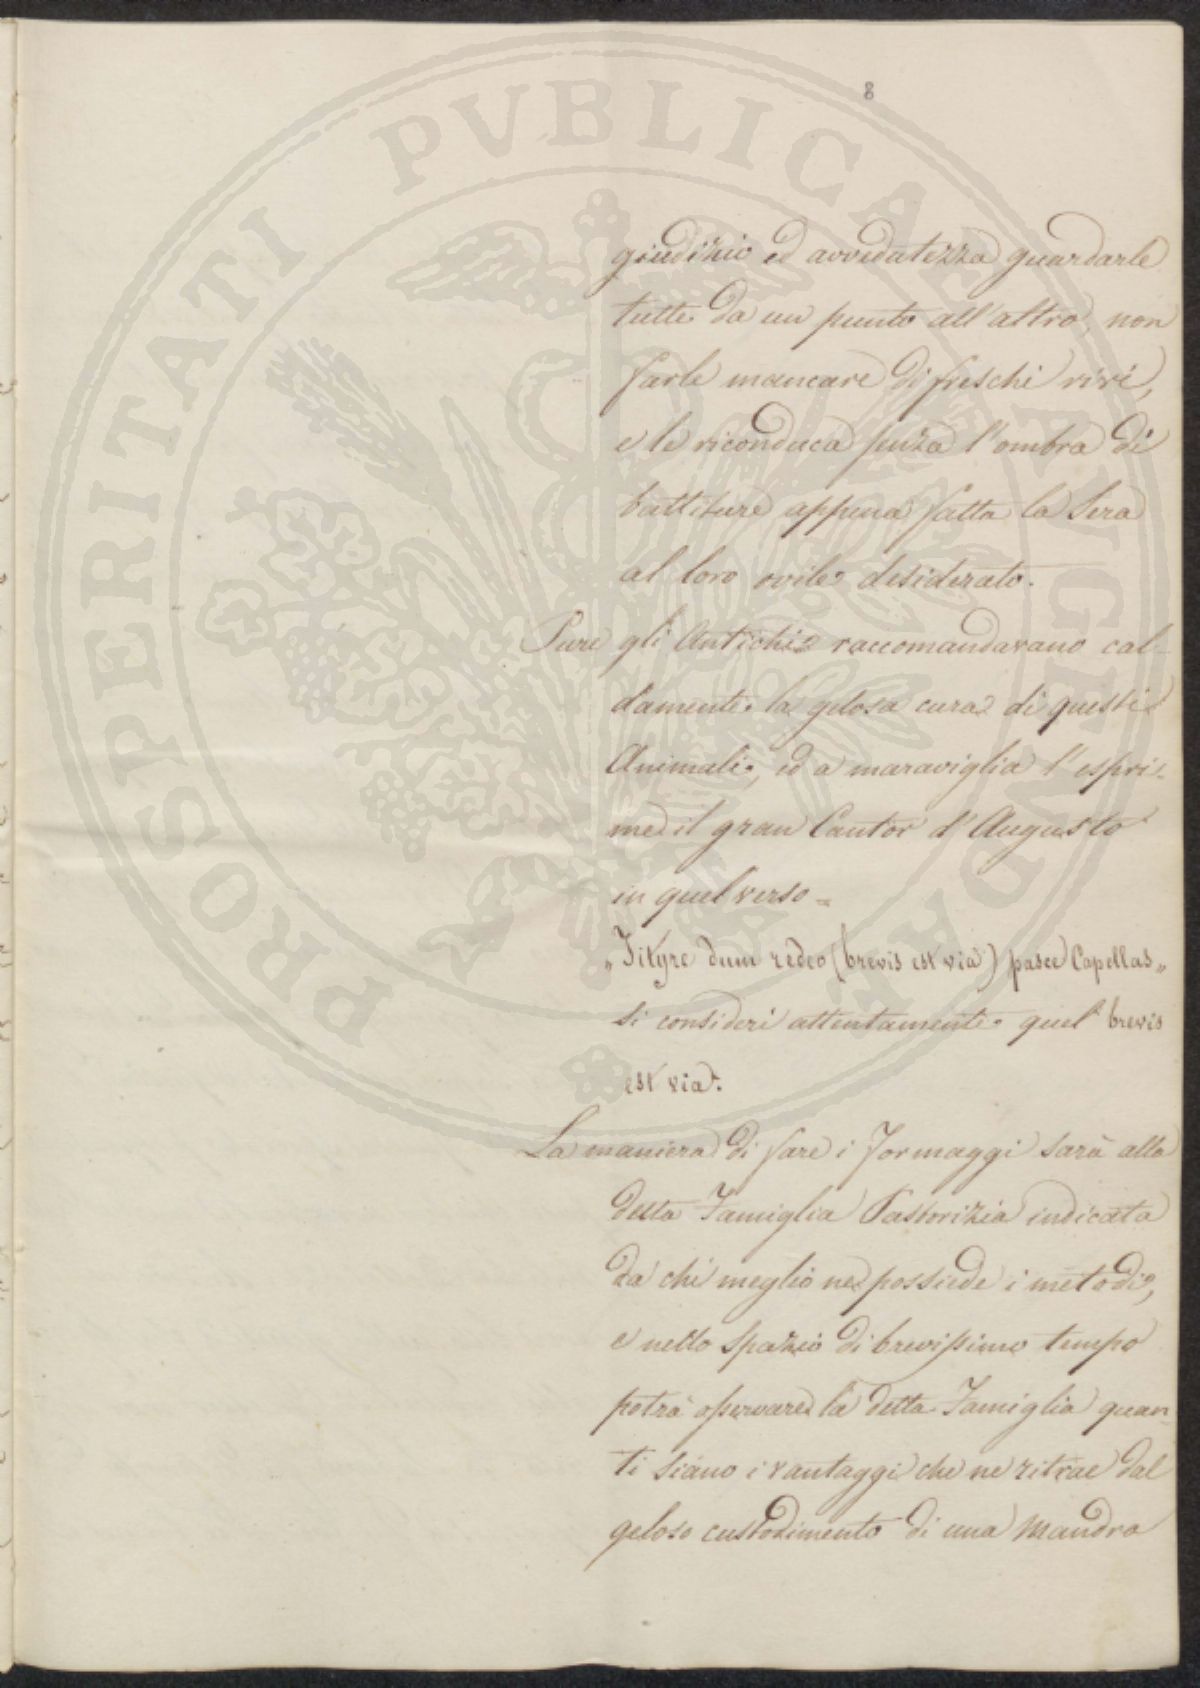 8
giudizio ed avvedutezza guardarle
tutte da un punto all'altro, non
farle mancare di freschi rivi,
e le riconduca senza l'ombra di
battiture appena fatta la Sera
al loro ovile desiderato.
Pure gli Antichi raccomandavano cal-
damente la gelosa cura di questi
Animali, ed a maraviglia l'espri-
me il gran Cantor d'Augusto
in quel verso =
„Tityre dum redeo (brevis est via) pasce Capellas„
si consideri attentamente quel brevis
est via.
La maniera di fare i Formaggi sarà alla
detta Famiglia Pastorizia indicata
da chi meglio ne possiede i metodi,
e nello spazio di brevissimo tempo
potrà osservare la detta Famiglia quan-
ti siano i vantaggi che ne ritrae dal
geloso custodimento di una Mandra
PROSPERITATI PVBLICAE AVGENDAE